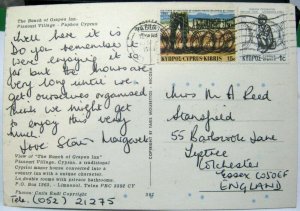 The Bunch of Grapes Inn
Pissouri Village - Paphos Cyprus
Well here it is
Do you remember it
very enjoying it so
far but the hours are
very long until we
get ourselves organised
Think we might get
to enjoy this very
much
Love Stan Margaret
View of "The Bunch of Grapes Inn"
Pissouri Village, Cyprus, a traditional
Cypriot manor house converted into a
country inn with a unique character.
Ten double rooms with private bathrooms
P.O. Box
- Limassol, Telex PBC 3222 CY
Photos: Emin Kadi Copyright
Tele. (052) 21275
387
ΚΥΠΡΟΣ-CYPRUS-KIBRIS 15c
ΚΥΠΡΟΣ 1c
Mrs M A Reed
Stansfield
55 Barbrook Lane
Tiptree
Colchester
Essex CO50EF
ENGLAND